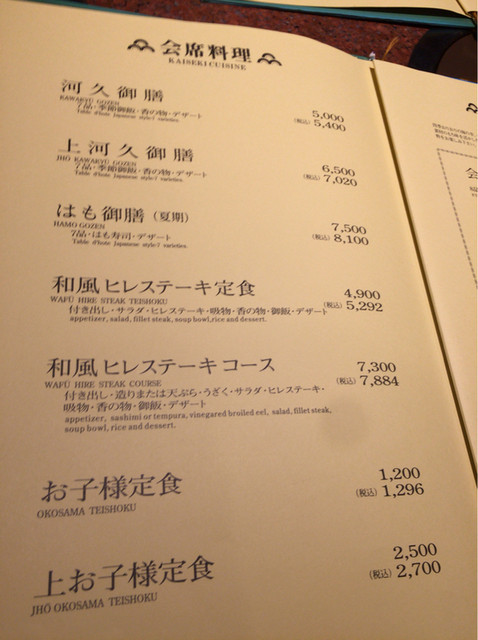 会席料理
KAISEKI CUISINE
河久御膳
KAWAKYŪ GOZEN
7品・季節御飯・香の物・デザート
Table d'hote Japanese style-7 varieties.
5,000
(税込) 5,400
上河久御膳
JHŌ KAWAKYŪ GOZEN
7品・季節御飯・香の物・デザート
Table d'hote Japanese style-7 varieties.
6,500
(税込) 7,020
はも御膳 (夏期)
HAMO GOZEN
7品・はも寿司・デザート
Table d'hote Japanese style-7 varieties.
7,500
(税込) 8,100
和風ヒレステーキ定食
WAFŪ HIRE STEAK TEISHOKU
付き出し・サラダ・ヒレステーキ・吸物・香の物・御飯・デザート
appetizer, salad, fillet steak, soup bowl,rice and dessert.
4,900
(税込) 5,292
和風ヒレステーキコース
WAFŪ HIRE STEAK COURSE
付き出し・造りまたは天ぷら・うざく・サラダ・ヒレステーキ・
吸物・香の物・御飯・デザート
appetizer, sashimi or tempura, vinegared broiled eel, salad, fillet steak,
soup bowl, rice and dessert.
7,300
(税込) 7,884
お子様定食
OKOSAMA TEISHOKU
1,200
(税込) 1,296
上お子様定食
JHŌ OKOSAMA TEISHOKU
2,500
(税込) 2,700